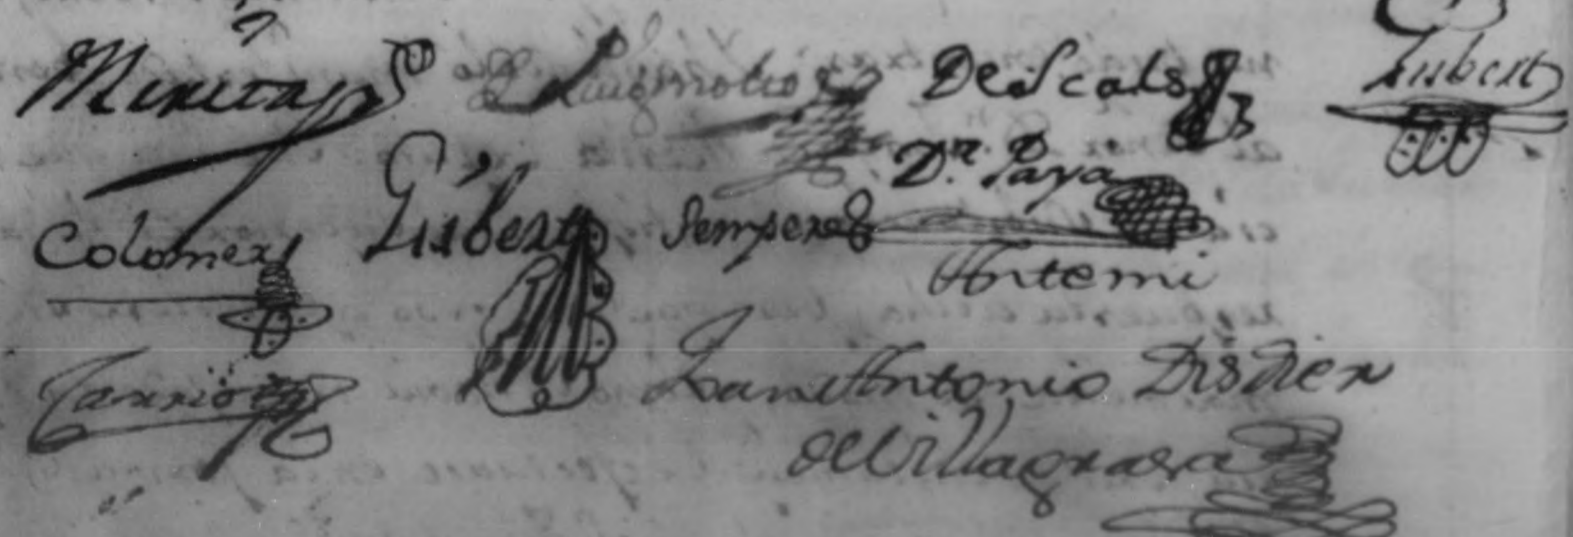 Merita Puigmolto Descals Gisbert
Dr. Paya
Colomer Gisbert Sempere
Antemi
Juan Antonio Disdier
de Villagrasa